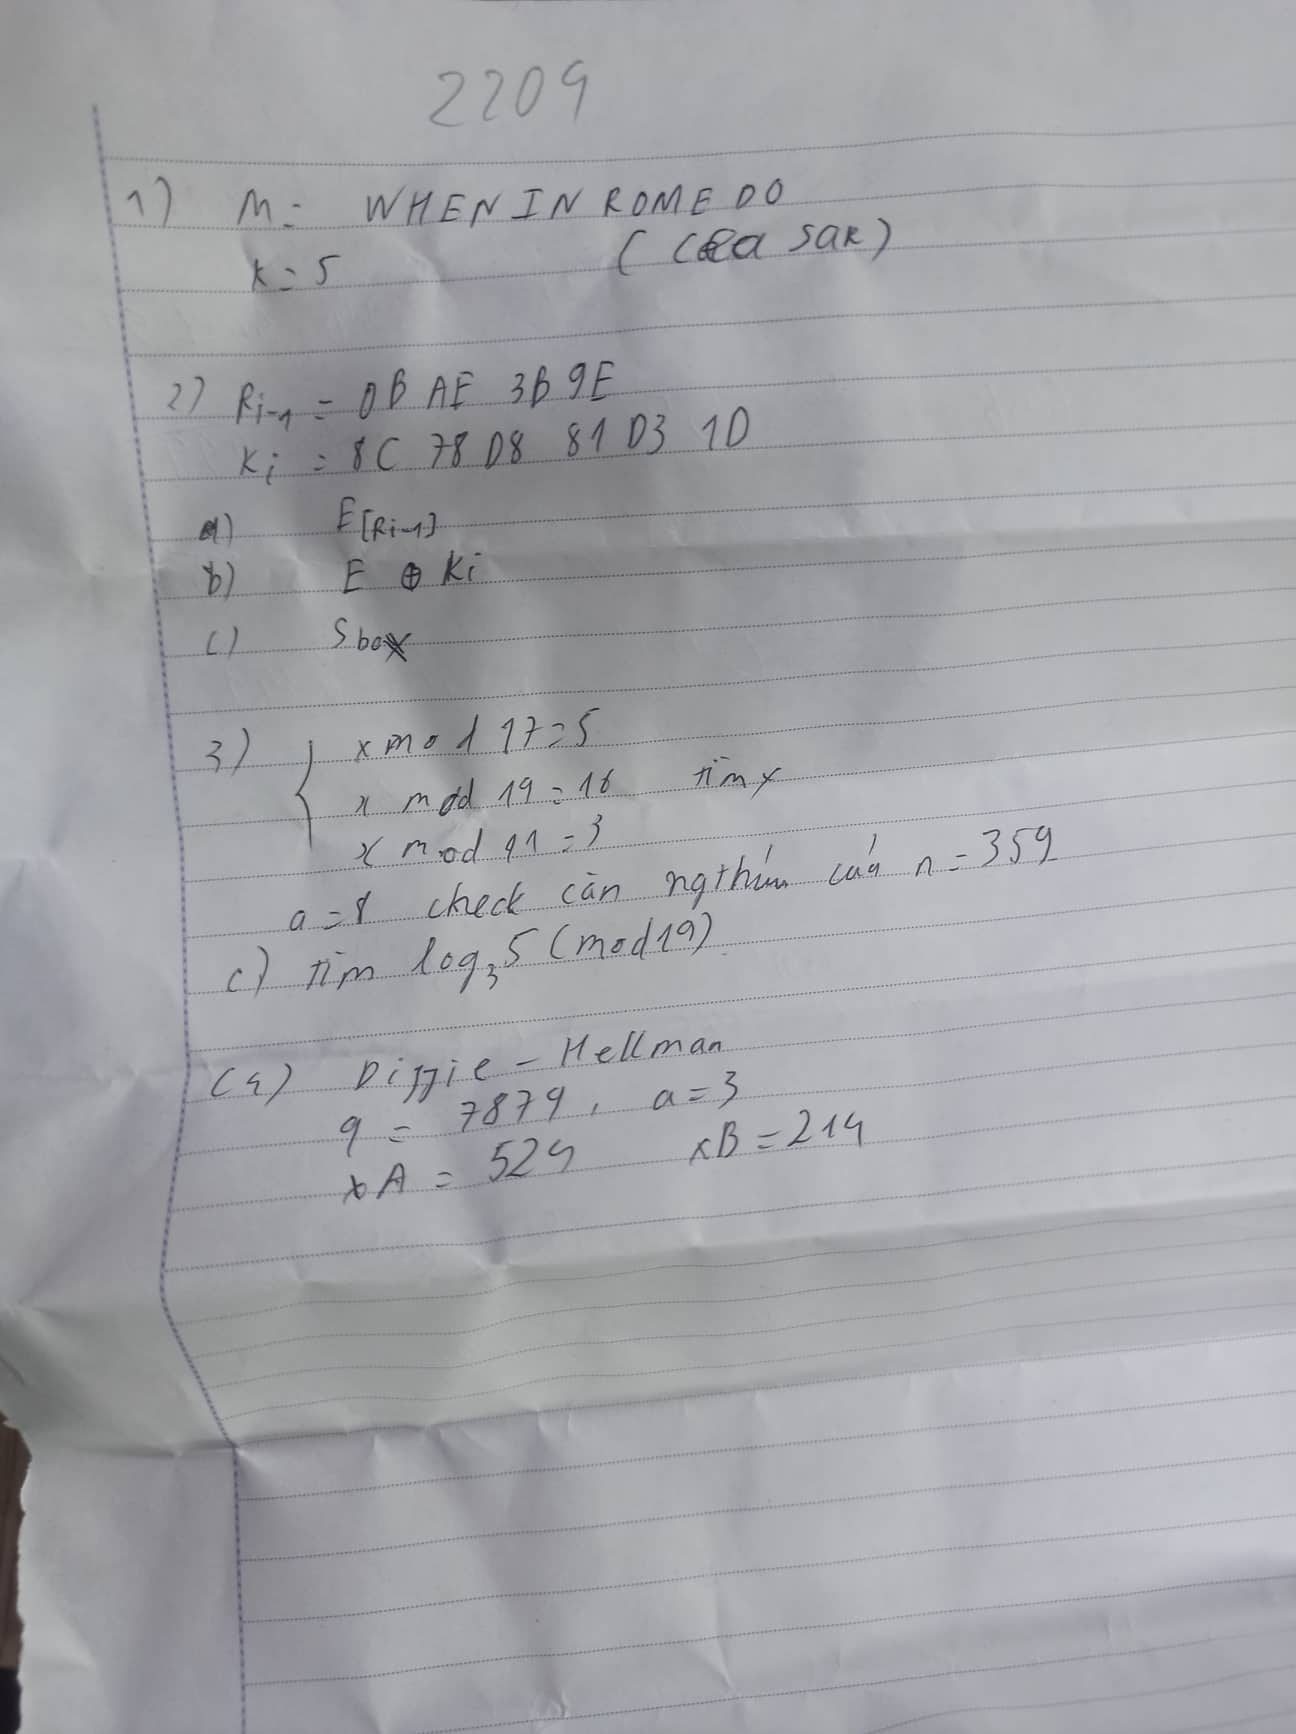 2209
1) M = WHEN IN ROME DO
K = 5 (Ceasar)
2) Ri-1 = 0B AE 3B 9E
Ki = 8C 78 D8 81 D3 1D
a) E[Ri-1]
b) E ⊕ Ki
c) Sbox
3) { x mod 17 = 5
x mod 19 = 16 tìm x
x mod 11 = 3
a = 8 check căn ngthủy của n = 359
c) tìm log3 5 (mod 19)
(4) Diffie - Hellman
q = 7879, a = 3
xA = 524 xB = 214